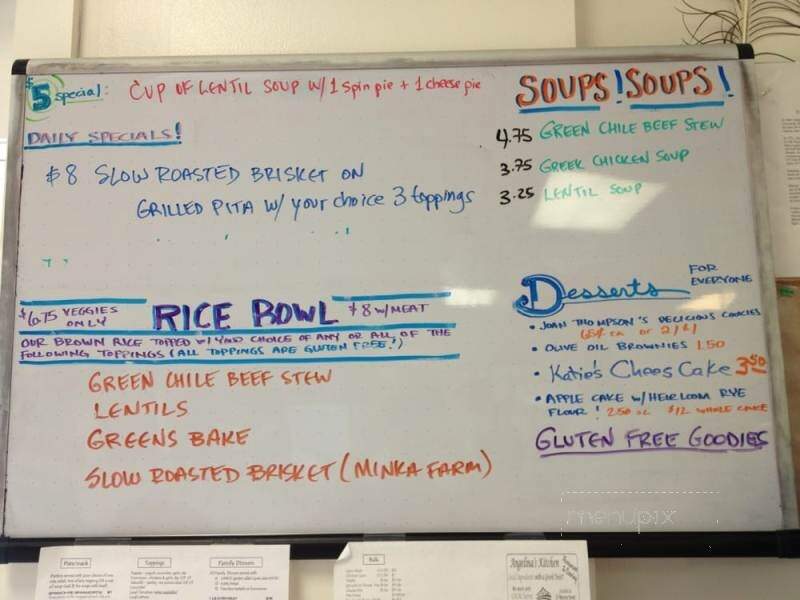 $5 special: CUP OF LENTIL SOUP W/ 1 spin pie + 1 cheese pie
DAILY SPECIALS!
$8 SLOW ROASTED BRISKET ON
GRILLED PITA W/ your choice 3 toppings
SOUPS! SOUPS!
4.75 GREEN CHILE BEEF STEW
3.75 GREEK CHICKEN SOUP
3.25 LENTIL SOUP
$6.75 VEGGIES ONLY RICE BOWL $8 W/MEAT
OUR BROWN RICE TOPPED W/ YOUR CHOICE OF ANY OR ALL OF THE
FOLLOWING TOPPINGS (ALL TOPPINGS ARE GLUTEN FREE!)
GREEN CHILE BEEF STEW
LENTILS
GREENS BAKE
SLOW ROASTED BRISKET (MINKA FARM)
Desserts FOR EVERYONE
• JOAN THOMPSON'S DELICIOUS COOKIES
• OLIVE OIL BROWNIES 1.50
• Katie's Chees Cake 3.50
• APPLE CAKE W/ HEIRLOOM RYE
FLOUR! 2.50 $12 WHOLE CAKE
GLUTEN FREE GOODIES
menupix
Pizza/snack
Toppings
Family Dinners
Angelina's Kitchen